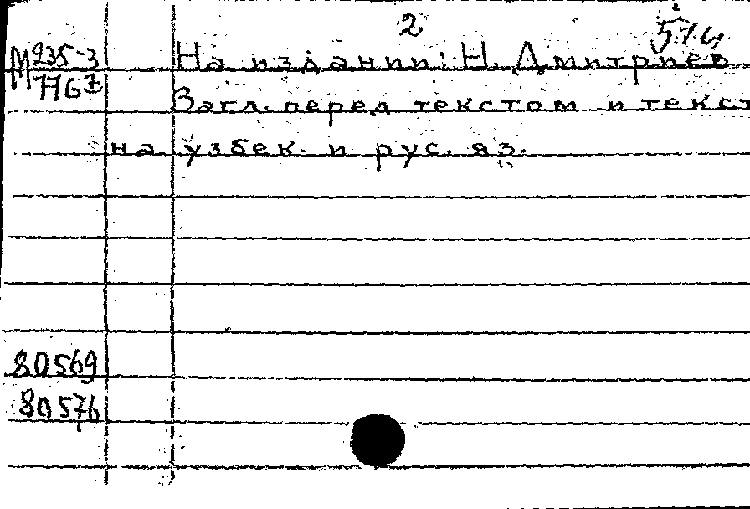 2
М 935-3
7767
На издании: Н. Дмитриев
Загл. перед текстом и текст
на узбек. и рус. яз.
80569
80576